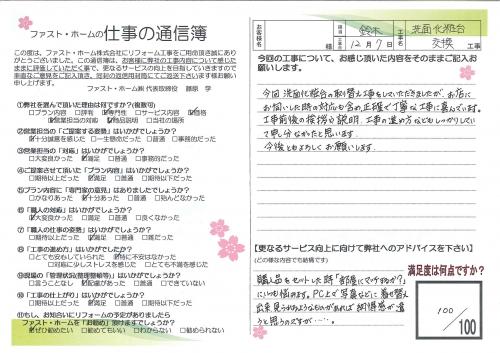 ファスト・ホームの仕事の通信簿
この度は、ファスト・ホーム株式会社にリフォーム工事をご用命頂き誠にありがとうございました。この通信簿は、お客様に弊社の工事内容について感じたままに評価していただく事で、更なるサービスの向上を目指していきますので率直なご意見をご記入頂き、同封の返信用封筒にてご返送下さいます様お願い申し上げます。
ファスト・ホーム㈱ 代表取締役
①弊社を選んで頂いた理由は何ですか?(複数可)
□プラン内容 □評判 専門性 □サービス内容 価格
営業担当の対応 商品説明 □当社の場所
②営業担当の「ご提案する姿勢」はいかがでしょうか?
十分誠意を感じた □一生懸命だった □普通 □事務的だった
③営業担当の「対応」はいかがでしょうか?
□大変良かった 満足 □普通 □事務的だった
④ご提案させて頂いた「プラン内容」はいかがでしょうか?
□期待以上だった 満足 □普通 □期待以下だった
⑤プラン内容に「専門家の意見」はありましたでしょうか?
□かなりあった 十分あった □普通 □殆んどなかった
⑥「職人の対応」はいかがでしょうか?
大変良かった □満足 □普通 □良くなかった
⑦「職人の仕事の姿勢」はいかがでしょうか?
□期待以上だった 満足 □普通 □雑だった
⑧「工事の進め方」はいかがでしたか?
□とても安心していられた 特に不安はなかった
□対応に少しストレスを感じた □とても不満を感じた
⑨現場の「管理状況(整理整頓等)」はいかがでしょうか?
□言うことなし 配慮があった □普通 □できていない
⑩「工事の仕上がり」はいかがでしょうか?
□期待以上だった 満足 □普通 □期待以下
⑪もし、お知り合いにリフォームの予定がありましたらファスト・ホームを「お勧め」頂けますでしょうか?
ぜひ勧めたい □勧めてもいい □わからない □勧められない
お客様名 様
担当 鈴木
12月7日
工事名 洗面化粧台交換 工事
今回の工事について、お感じ頂いた内容をそのままご記入お願いします。
今回洗面化粧台の取替え工事をしていただきましたが、お店に
お伺いした時の対応も含め正確で丁寧な工事に喜んでいます。
工事前後の挨拶や説明、工事の進め方などもしっかりしてい
て申し分なかったと思います。
今後ともよろしくお願いします。
【更なるサービス向上に向けて弊社へのアドバイスを下さい】
(どの様な内容でも結構です)
満足度は何点ですか?
100/100